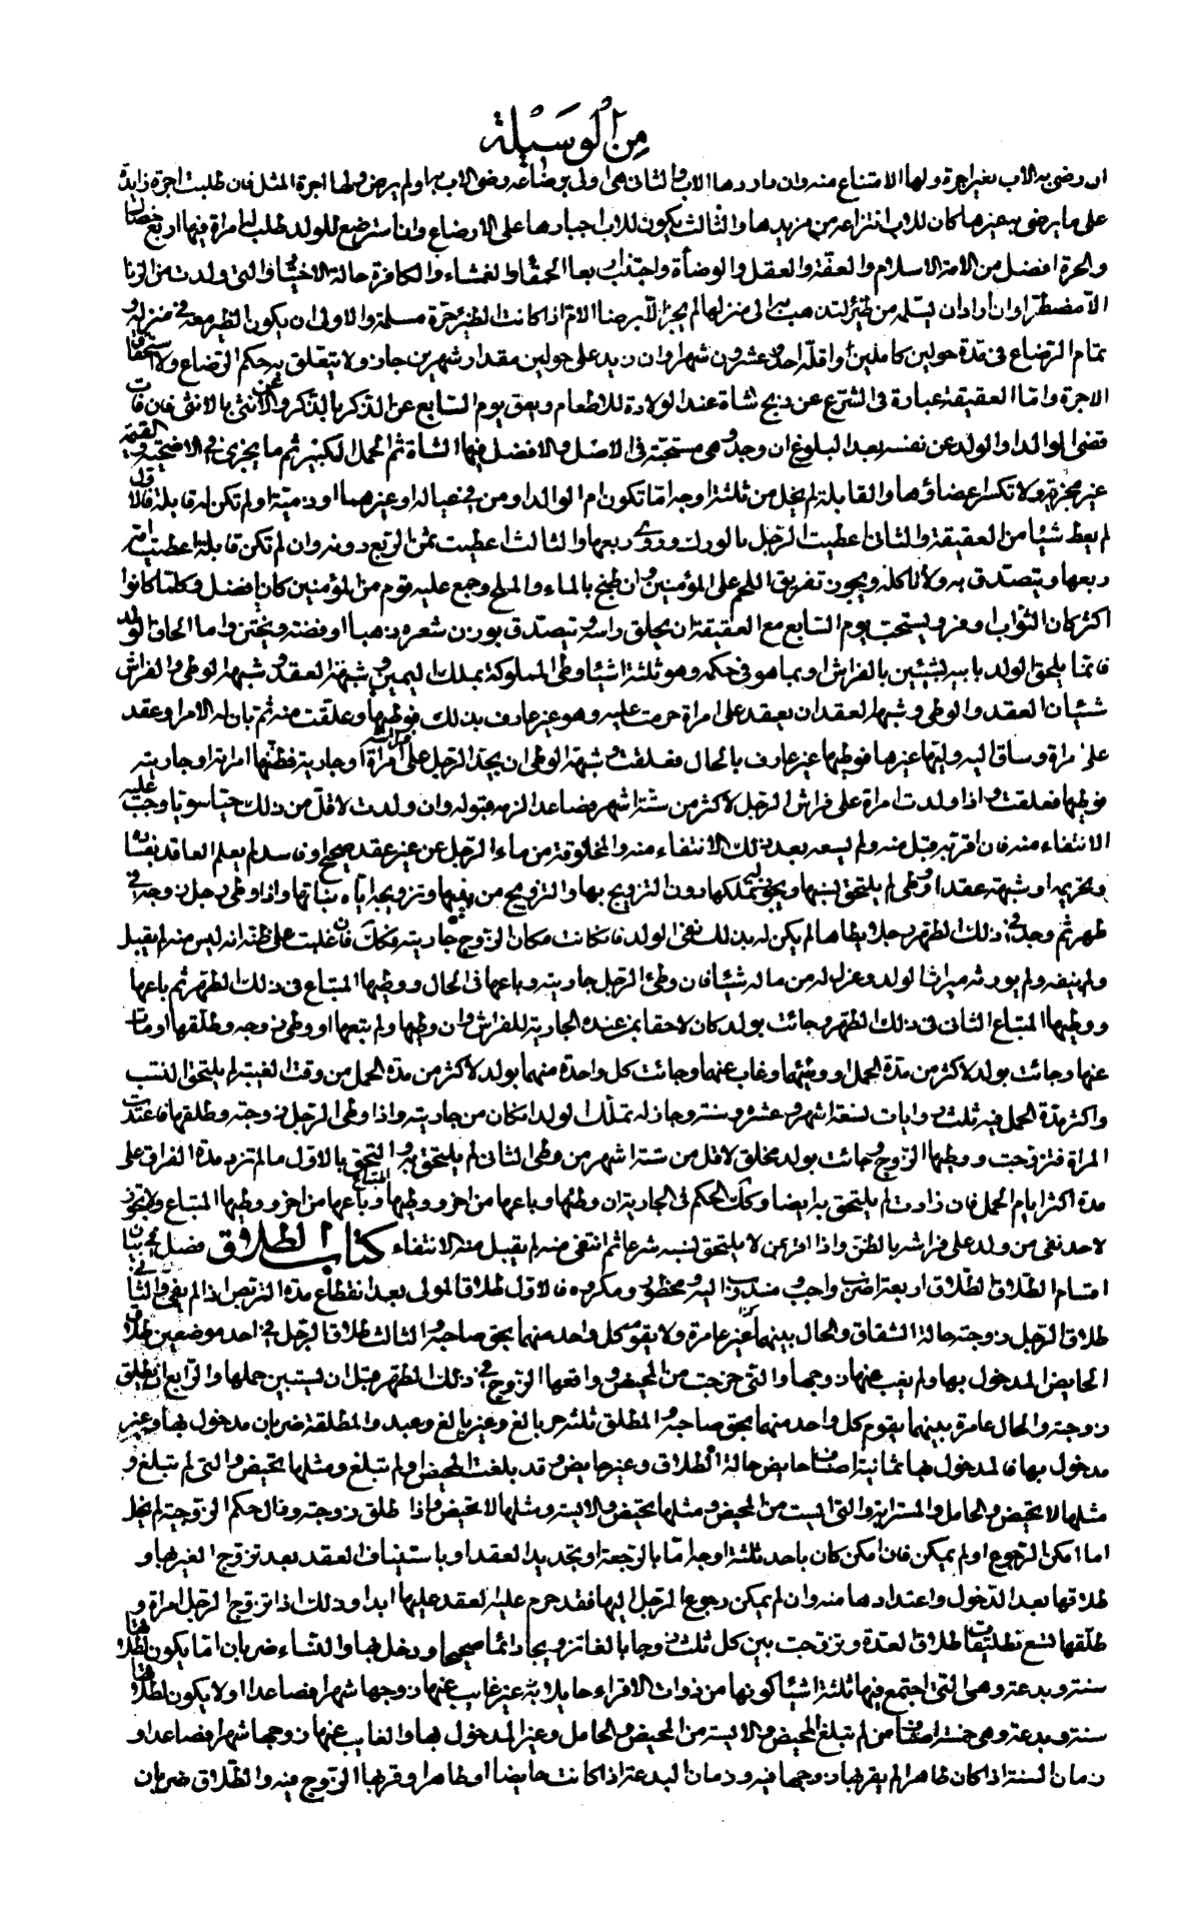 من الوسيلة
ان رضى به الاب بغير اجرة ولها الامتناع منه وان بادرها الاب والثاني هي اولى برضاعه ورضى الاب بها ولم يرض ولها اجرة المثل فان طلبت اجرة زايدة
على ما يرضى به غيرها كان للاب انتزاعه من يدها والثالث يكون للاب اجبارها على الارضاع وان استرضع للولد طلب له امراة فيها اربع خصال
والحرة افضل من الامة الاسلام والعفة والعقل والوضأة واجتناب الحمقاء والعمشاء والكافرة حالة الاختيار والتي ولدت من الزنا
الا مضطرا وان اراد ان يسلمه من ظئر لتذهب به الى منزلها لم يجز الا برضا الام اذا كانت الظئر حرة مسلمة والاولى ان يكون الظئر معه في منزله و
تمام الرضاع في مدة حولين كاملين واقله احد وعشرون شهرا وان زيد على حولين مقدار شهرين جاز ولا يتعلق به حكم الرضاع ولا استحقاق
الاجرة واما العقيقة عبارة في الشرع عن ذبح شاة عند الولادة للاطعام ويعق يوم السابع عن الذكر بالذكر وعن الانثى بالانثى فان فات
قضى الوالد او الولد عن نفسه بعد البلوغ ان وجد وهي مستحبة في الاصل والافضل فيها الشاة ثم الحمل الكبير ثم ما يجزى في الاضحية والقيمة
غير مجزية ولا تكسر اعضاؤها والقابلة لم يخل من ثلثة اوجه اما تكون ام الوالد او من في عياله او غيرهما او ذمية او لم تكن له قابلة فالاول
لم يعط شيئا من العقيقة والثاني اعطيت الرجل بالورك وروى ربعها والثالث اعطيت ثمن الربع دونه وان لم تكن قابلة اعطيت امه
ربعها ويتصدق به ولا تاكله ويجوز تفريق اللحم على المؤمنين وان طبخ بالماء والملح وجمع عليه قوم من المؤمنين كان افضل وكلما كانوا
اكثر كان الثواب اوفر ويستحب يوم السابع مع العقيقة ان يحلق راسه ويتصدق بوزن شعره ذهبا او فضة ويختن واما الحاق الولد
فانما يلحق الولد بابيه بشيئين بالفراش او بما هو في حكمه وهو ثلثة اشياء وطى المملوكة بملك اليمين وشبهة العقد وشبهة الوطى والفراش
شيئان العقد والوطى وشبه العقد ان يعقد على امراة حرمت عليه وهو غير عارف بذلك فوطيها وعلقت منه ثم بان له الامر او عقد
على امراة وساق اليه وليها غيرها فوطيها غير عارف بالحال فعلقت وشبهة الوطى ان يجد الرجل على فراشه امراة او جارية فظنها امراته او جاريته
فوطيها فعلقت واذا ولدت امراة على فراش الرجل لاكثر من ستة اشهر فصاعدا لزمه قبوله وان ولدت لاقل من ذلك حيا سويا وجب عليه
الانتفاء منه فان اقر به قبل منه ولم يسعه بعد ذلك الانتفاء منه والمخلوقة من ماء الرجل عن غير عقد صحيح وفاسد لم يعلم العاقد بفساده
وبتحريمه او شبهة عقد او وطى لم يلتحق بنسبها ويجوز له تملكها دون التزويج بها والتزويج من بنيها وتزويج اباه بناتها واذا وطى رجل زوجته في
طهر ثم وجد في ذلك الطهر رجلا يطاها لم يكن له بذلك نفى الولد فان كانت مكان الزوج جاريته فكك فان غلبت على ظنه انه ليس منه لم يقبل
ولم ينفه ولم يورثه ميراث الولد وعزل له من ماله شيئا فان وطئ الرجل جاريته وباعها في الحال ووطيها المبتاع في ذلك الطهر ثم باعها
ووطيها المبتاع الثاني في ذلك الطهر وجائت بولد كان لاحقا بمن عنده الجارية للفراش وان وطيها ولم يبعها او وطى زوجه وطلقها او مات
عنها وجائت بولد لاكثر من مدة الحمل او وطيهما وغاب عنهما وجائت كل واحدة منهما بولد لاكثر من مدة الحمل من وقت الغيبة لم يلتحق النسب
واكثر مدة الحمل فيه ثلث روايات تسعة اشهر وعشرة وسنة وجاز له تملك الولد ان كان من جاريته واذا وطى الرجل زوجته وطلقها فاعتدت
المراة فتزوجت ووطيها الزوج وجائت بولد مخلق لاقل من ستة اشهر من وطى الثاني لم يلتحق به والتحق بالاول ما لم تزد مدة الفراق على
مدة اكثر ايام الحمل فان زادت لم يلتحق به ايضا وكك الحكم في الجارية ان وطئها وباعها من اخر ووطيها المبتاع وباعها من اخر ووطيها المبتاع ولا يجوز
لاحد نفى من ولد على فراشه بالظن واذا اقر بمن لا يلتحق بنسبه شرعا ثم انتفى منه لم يقبل منه الانتفاء كتاب الطلاق فصل في بيان
اقسام الطلاق الطلاق اربعة اضرب واجب ومندوب اليه ومحظور ومكروه فالاول طلاق المولى بعد انقطاع مدة التربص اذا لم يفئ والثاني
طلاق الرجل زوجته حالة الشقاق والحال بينهما غير عامرة ولا يقوم كل واحد منهما بحق صاحبه والثالث طلاق الرجل في احد موضعين طلاق
الحايض المدخول بها ولم يغب عنها زوجها والتي خرجت من الحيض وواقعها الزوج في ذلك الطهر قبل ان يستبين حملها والرابع ان يطلق
زوجته والحال عامرة بينهما يقوم كل واحد منهما بحق صاحبه والمطلق ثلثة حر بالغ وغير بالغ وعبد والمطلقة ضربان مدخول بها وغير
مدخول بها فالمدخول بها ثمانية اصناف حايض حالة الطلاق وغير حايض وقد بلغت المحيض ولم تبلغ ومثلها تحيض والتي لم تبلغ و
مثلها لا تحيض والحامل والمسترابة والتي ايست من المحيض ومثلها تحيض والايسة ومثلها لا تحيض واذا طلق زوجته وفال حكم الزوجية لم يخل
اما امكن الرجوع او لم يمكن فان امكن كان باحد ثلثة اوجه اما بالرجعة او بتجديد العقد او باستيناف العقد بعد تزوج الغير بها و
طلاقها بعد الدخول واعتدادها منه وان لم يمكن رجوع الرجل اليها فقد حرم عليه العقد عليها ابدا وذلك اذا تزوج الرجل امراة و
طلقها تسع تطليقات طلاق العدة وتزوجت بين كل ثلث زوجا بالغا تزويجا دائما صحيحا ودخل بها والنساء ضربان اما يكون لطلاقها
سنة وبدعة وهي التي اجتمع فيها ثلثة اشيا كونها من ذوات الاقراء حايلا به غير غايب عنها زوجها شهرا فصاعدا او لا يكون لطلاقها
سنة وبدعة وهي خمسة اصناف من لم تبلغ المحيض والايسة من المحيض والحامل وغير المدخول بها والغايب عنها زوجها شهرا فصاعدا و
زمان السنة اذا كان طاهرا لم يقربها زوجها فيه وزمان البدعة اذا كانت حايضا او طاهرا وقربها الزوج فيه والطلاق ضربان